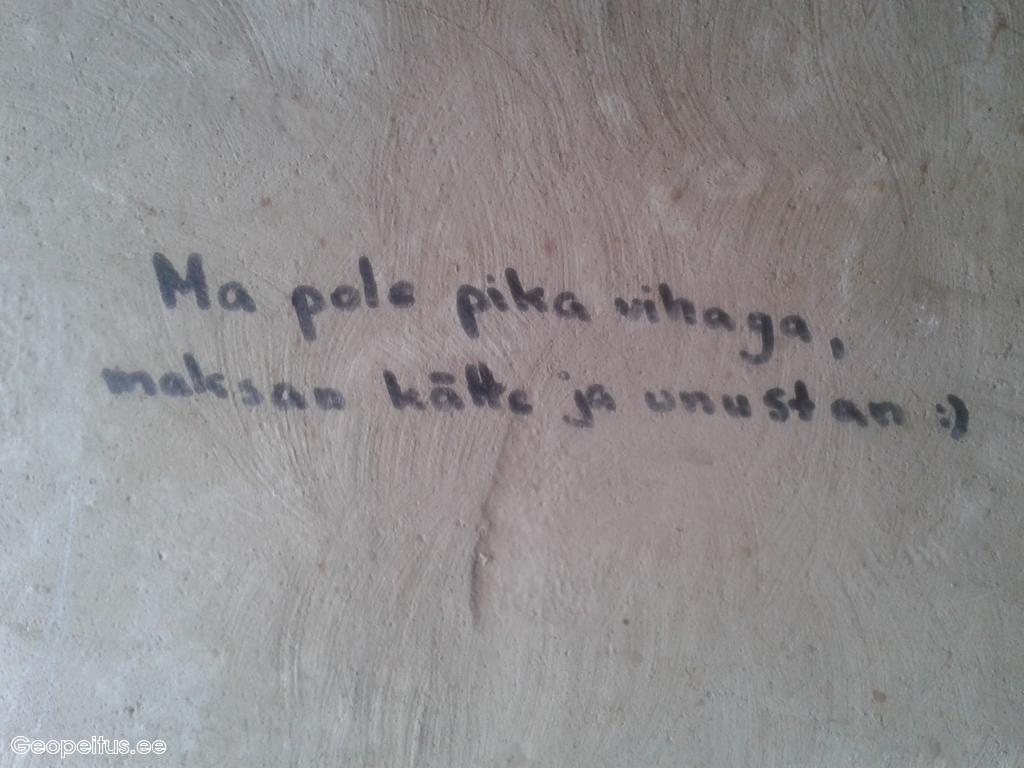 Ma pole pika vihaga,
maksan kätte ja unustan :)
Geopeitus.ee